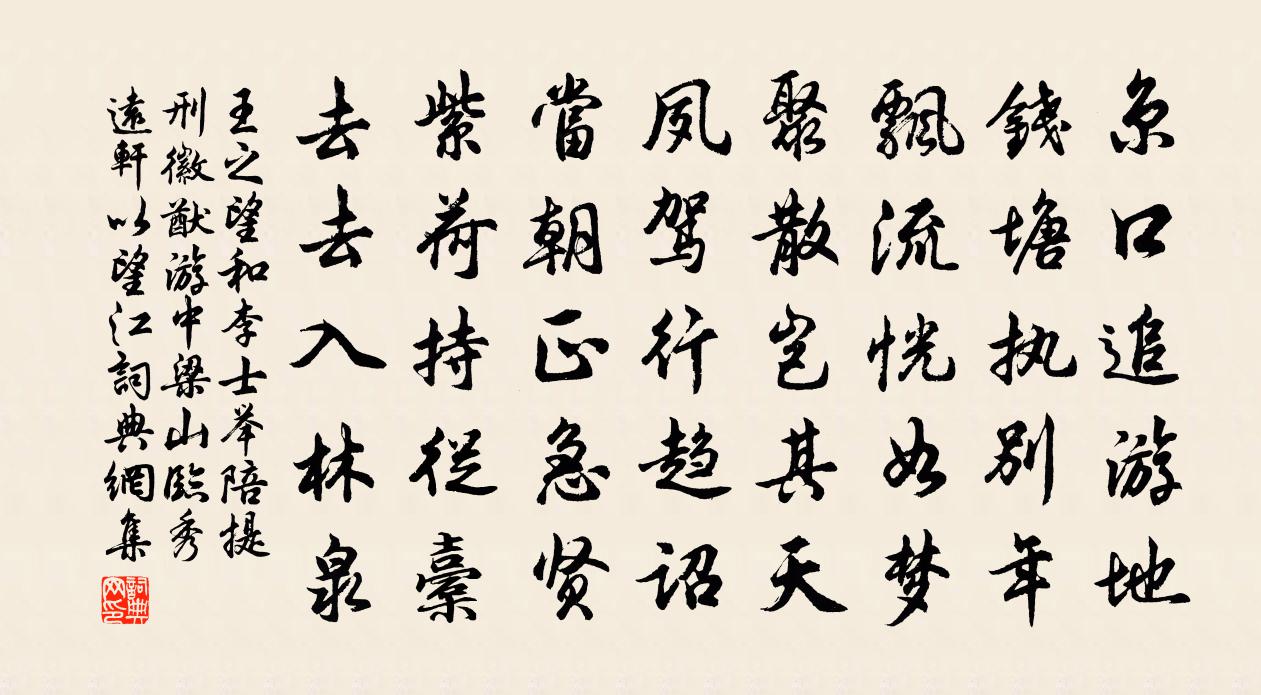 京口追游地
錢塘执别年
飄流恍如梦
聚散岂其天
夙驾行趋诏
當朝正急贤
紫荷持從橐
去去入林泉
王之望和李士举陪提
刑徽猷游中梁山臨秀
遠軒以望江詞典網集
詞典网印